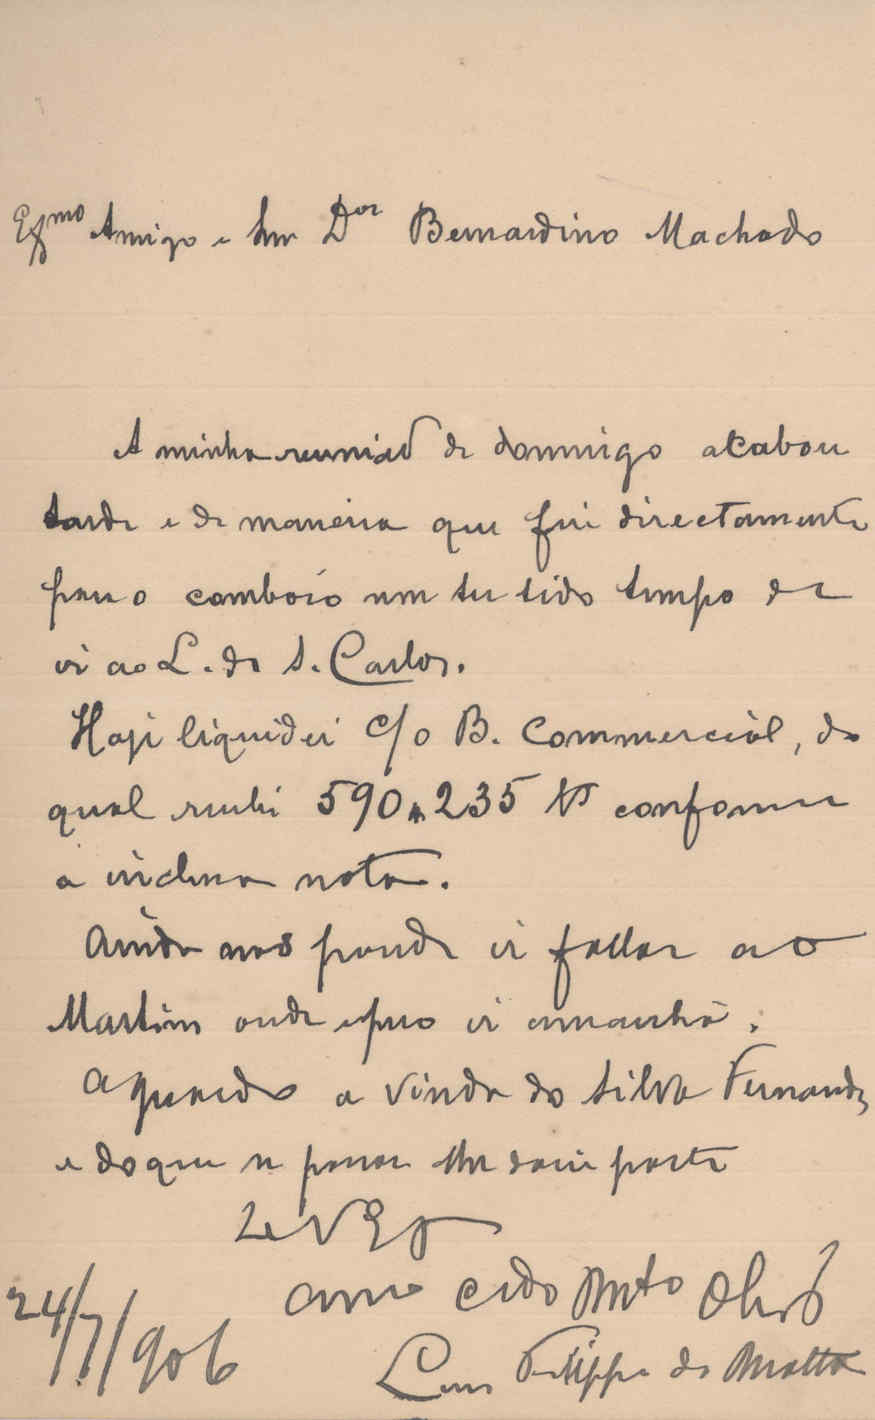 Exmo Amigo e Snr Dor Bernardino Machado
A minha reunião de domingo acabou
tarde e de maneira que fui directamente
para o comboio sem ter tido tempo de
ir ao L. de S. Carlos.
Hoje liquidei c/o B. Commercial, do
qual recebi 590$235 rs conforme
a inclusa nota.
Ainda não poude ir fallar ao
Martins onde espero ir amanhã.
Aguardo a vinda do Silva Fernandes
e do que se passar lhe darei parte
De V Exa
Amo cdo mto obrgo
Luis Filippe da Matta
24/7/906